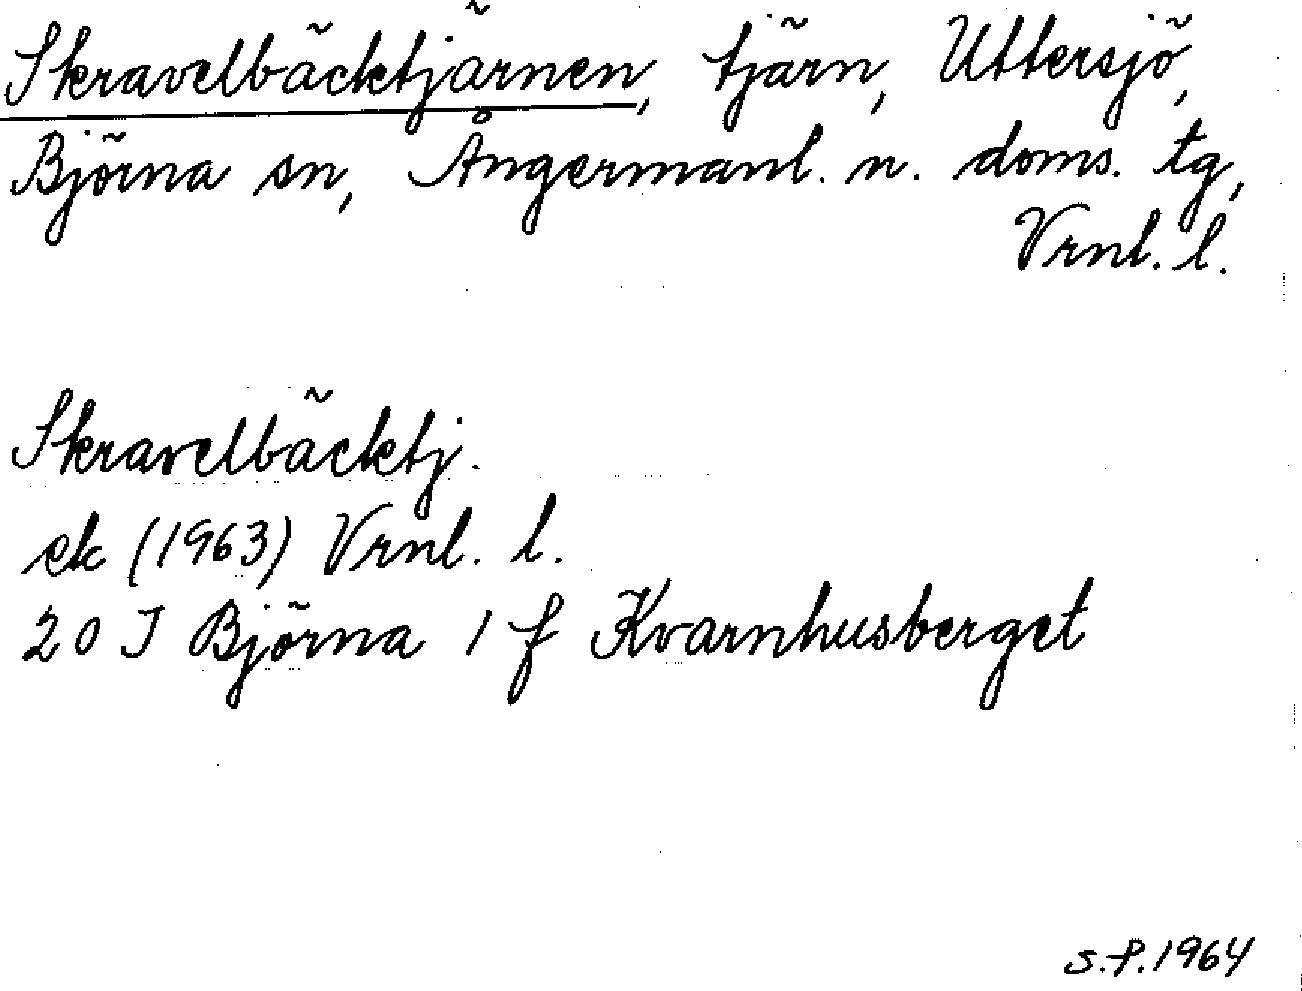 Skravelbäcktjärnen, tjärn, Uttersjö,
Björna sn, Ångermanl. n. doms. tg,
Vrnl. l.
Skravelbäcktj.
ek (1963) Vrnl. l.
20 I Björna 1 f Kvarnhusberget
S.P.1964